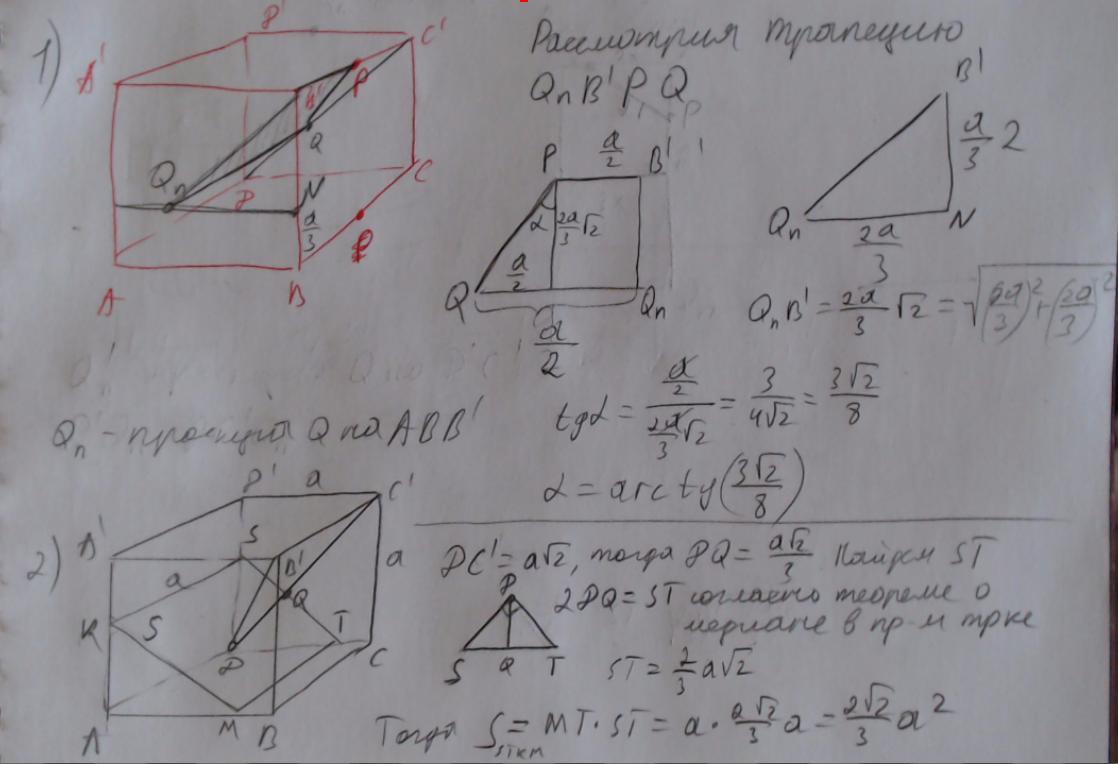 1)
D'
C'
A'
B'
P
Q
Qn
D
N
C
a/3
P
A
B
Рассмотрим трапецию
Qn B' P Q
P a/2 B'
α 2a/3 √2
a/2
Q Qn
a/2
B'
a/3 2
Qn N
2a/3
Qn B' = 2a/3 √2 = √((2a/3)² + (2a/3)²)
tgα = (a/2)/(2a/3 √2) = 3/(4√2) = 3√2/8
α = arctg(3√2/8)
Qn - проекция Q на ABB'
2)
D' a C'
A' S B' a
a Q
K S T
D C
A M B
DC' = a√2, тогда DQ = a√2/3 Найдем ST
D
S Q T
2DQ = ST согласно теореме о
медиане в пр-м тр-ке
ST = 2/3 a√2
Тогда S STKM = MT · ST = a · 2√2/3 a = 2√2/3 a²